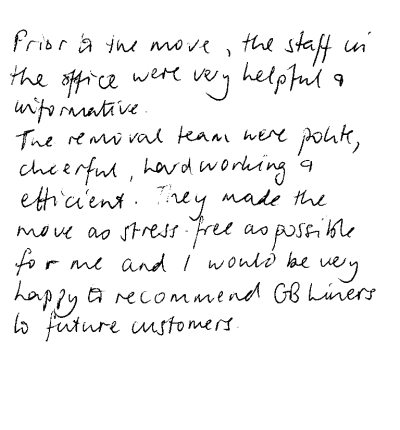 Prior to the move, the staff in
the office were very helpful &
informative.
The removal team were polite,
cheerful, hardworking &
efficient. They made the
move as stress-free as possible
for me and I would be very
happy to recommend GB Liners
to future customers.